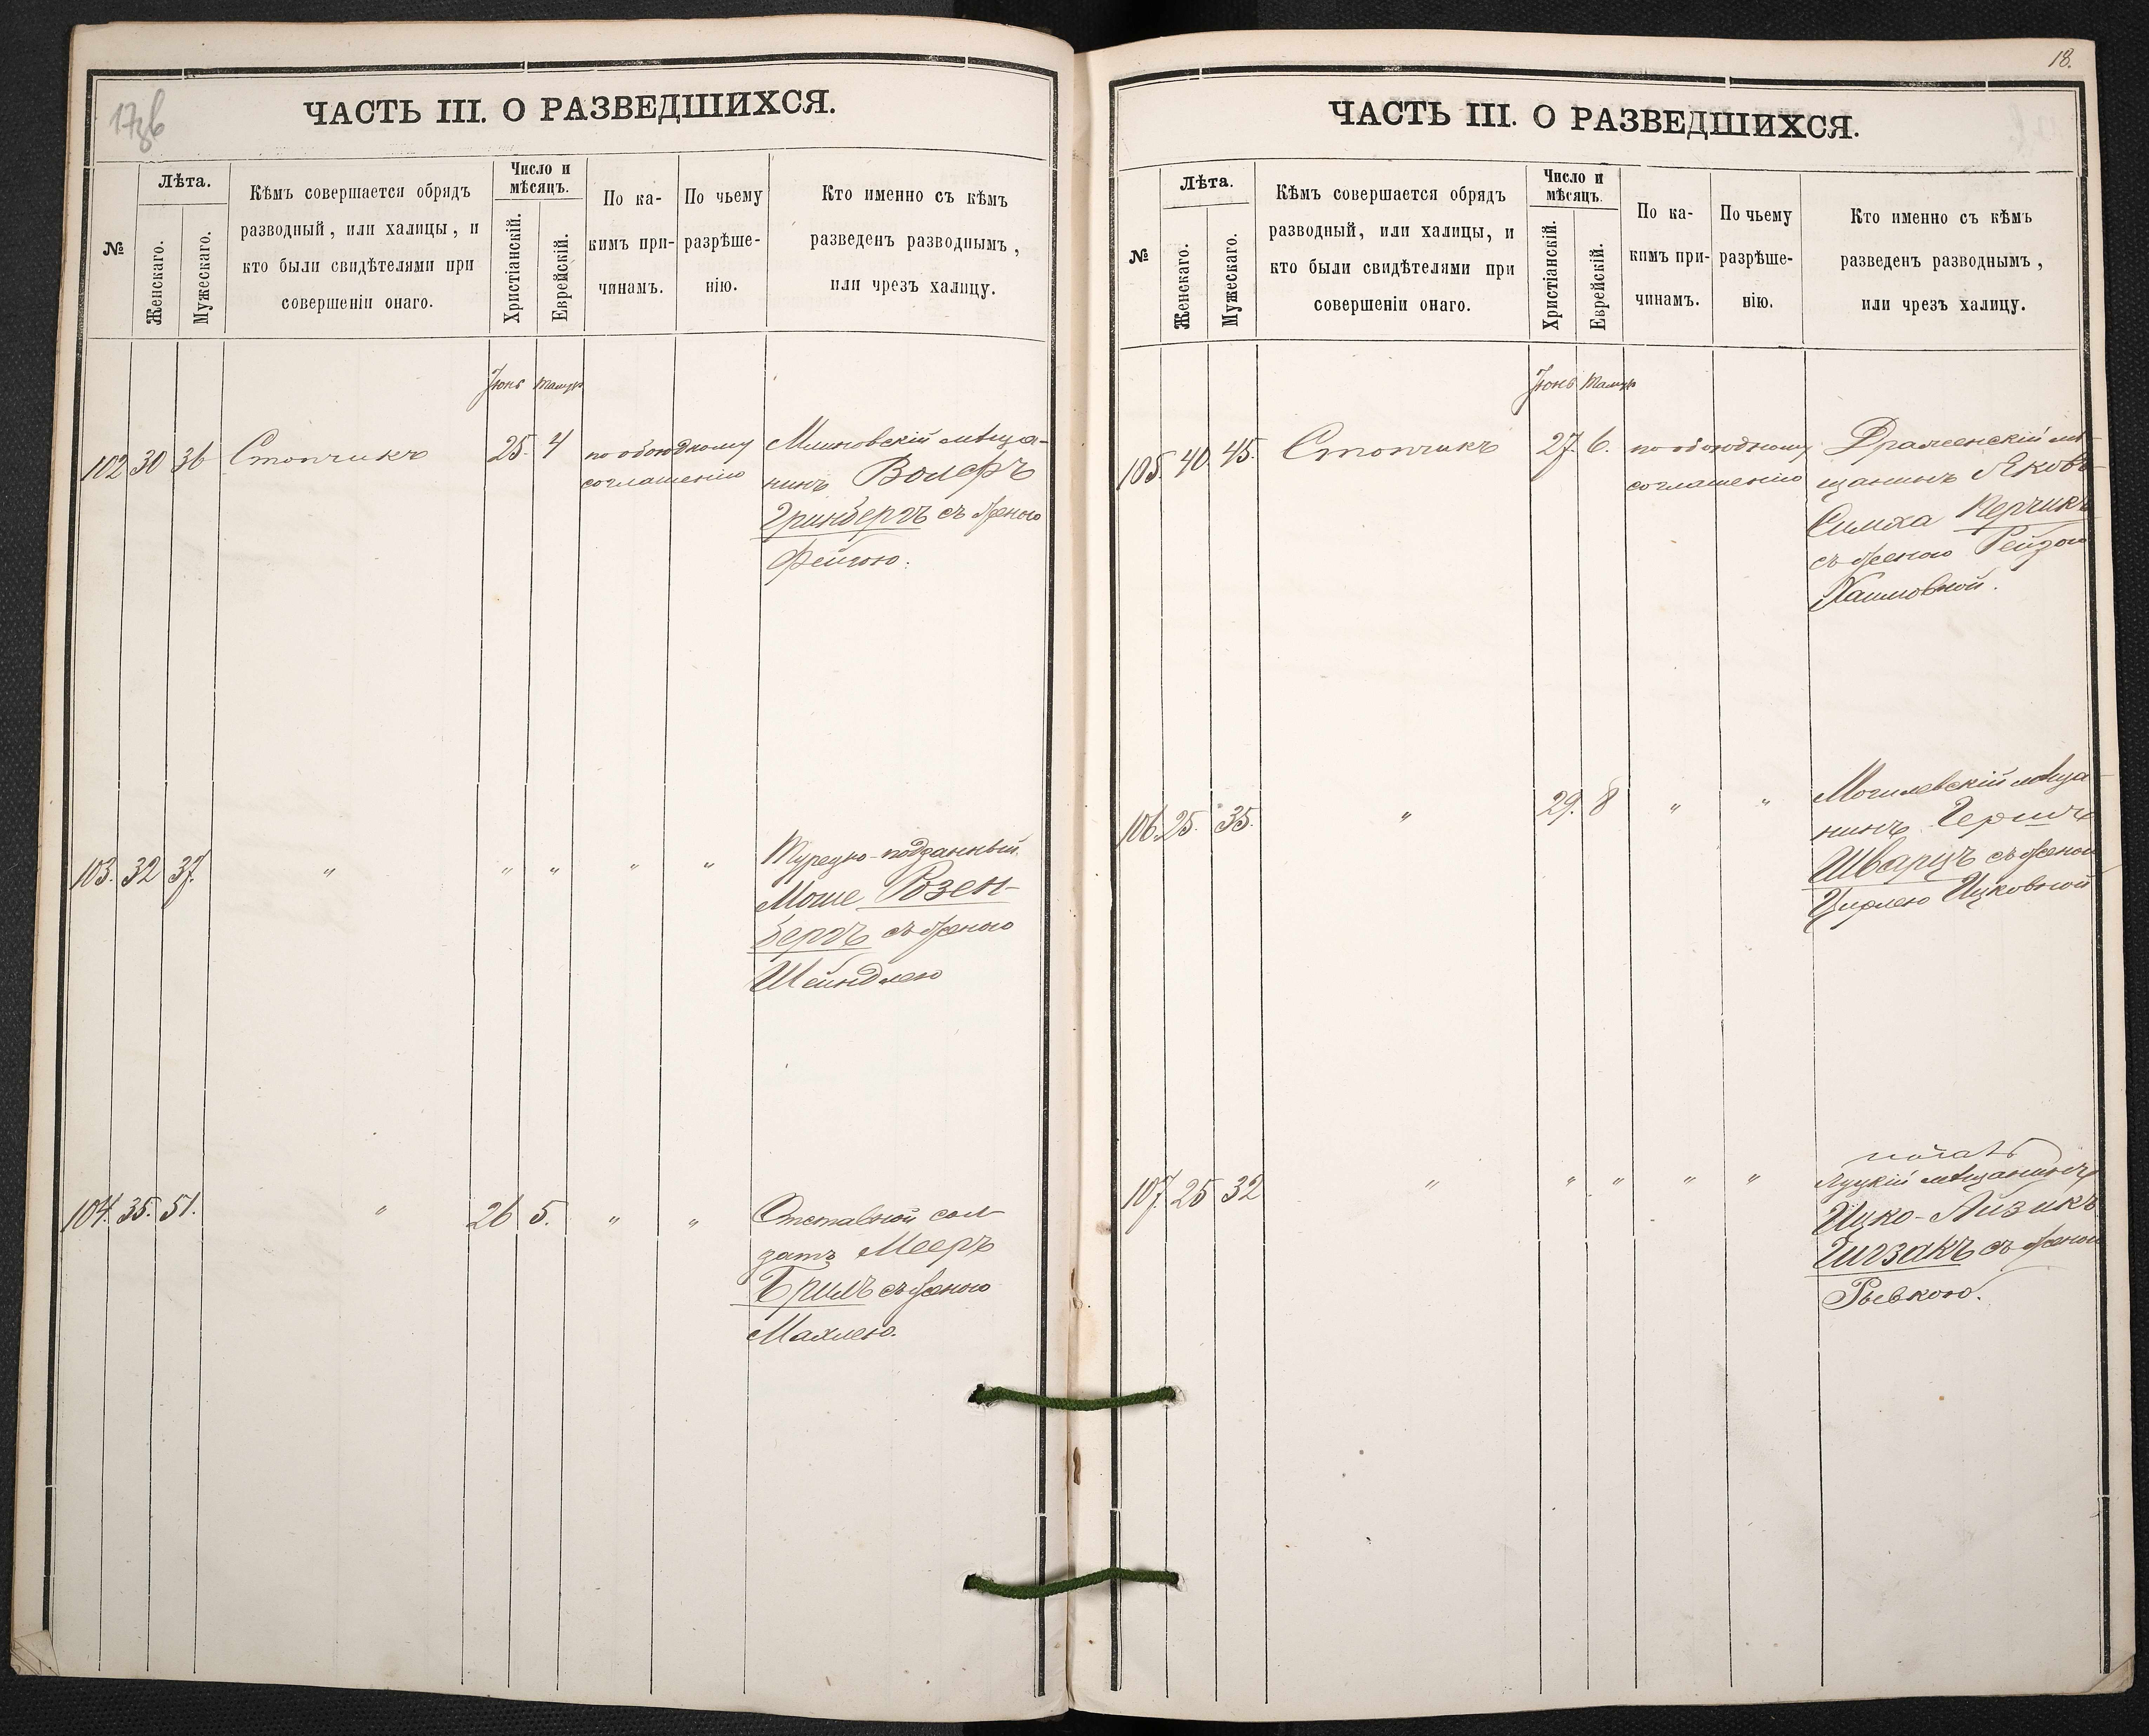 17зв
ЧАСТЬ III. О РАЗВЕДШИХСЯ.
№
Лѣта.
Женскаго.
Мужескаго.
Кѣмъ совершается обрядъ
разводный, или халицы, и
кто были свидѣтелями при
совершеніи онаго.
Число и
мѣсяцъ.
Христіанскій.
Еврейскій.
По ка-
кимъ при-
чинамъ.
По чьему
разрѣше-
нію.
Кто именно съ кѣмъ
разведенъ разводнымъ,
или чрезъ халицу.
Іюнь Тамузъ
102 30 36 Стопчикъ 25. 4 по обоюдному
соглашенію
Млиновскій мѣща-
нинъ Волфъ
Гринбергъ съ женою
Фейгою.
103. 32 37. " " " " "
Турецко-подданный
Моше Розен-
бергъ съ женою
Шейндлею
104. 35. 51. " 26 5. " "
Отставной сол-
датъ Мееръ
Брилъ съ женою
Махлею.
18.
ЧАСТЬ III. О РАЗВЕДШИХСЯ.
№
Лѣта.
Женскаго.
Мужескаго.
Кѣмъ совершается обрядъ
разводный, или халицы, и
кто были свидѣтелями при
совершеніи онаго.
Число и
мѣсяцъ.
Христіанскій.
Еврейскій.
По ка-
кимъ при-
чинамъ.
По чьему
разрѣше-
нію.
Кто именно съ кѣмъ
разведенъ разводнымъ,
или чрезъ халицу.
Іюнь Тамузъ
105. 40. 45. Стопчикъ 27. 6. по обоюдному
соглашенію
мѣ-
щанинъ Яковъ-
Симха Керчикъ
съ женою Рейзою
Хаимовной.
106. 25. 35. " 29. 8 " "
Могилевскій мѣща-
нинъ Гершъ
Шварцъ съ женою
Ципрею Ицковной
107. 25 32 " " " " "
Луцкій мѣщанинъ
Ицко-Айзикъ
съ женою
Рывкою.